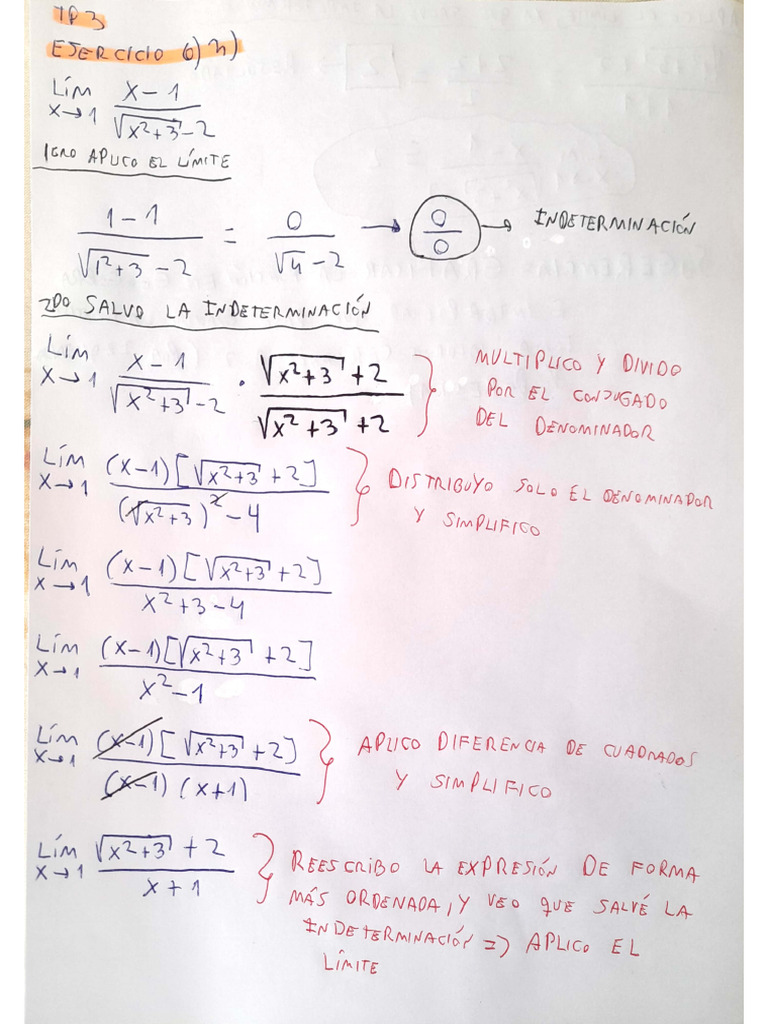 TP 3
EJERCICIO 6) n)
Lím x→1 (x-1)/(√(x²+3) -2)
1ero APLICO EL LÍMITE
(1-1)/(√(1²+3) -2) = 0/(√4 -2) → 0/0 → INDETERMINACIÓN
2DO SALVO LA INDETERMINACIÓN
Lím x→1 (x-1)/(√(x²+3) -2) · (√(x²+3) +2)/(√(x²+3) +2) } MULTIPLICO Y DIVIDO
POR EL CONJUGADO
DEL DENOMINADOR
Lím x→1 (x-1)[√(x²+3) +2]/((√(x²+3))² -4) } DISTRIBUYO SOLO EL DENOMINADOR
Y SIMPLIFICO
Lím x→1 (x-1)[√(x²+3) +2]/(x²+3-4)
Lím x→1 (x-1)[√(x²+3) +2]/(x²-1)
Lím x→1 (x-1)[√(x²+3) +2]/((x-1)(x+1)) } APLICO DIFERENCIA DE CUADRADOS
Y SIMPLIFICO
Lím x→1 (√(x²+3) +2)/(x+1) } REESCRIBO LA EXPRESIÓN DE FORMA
MÁS ORDENADA, Y VEO QUE SALVÉ LA
INDETERMINACIÓN => APLICO EL
LÍMITE